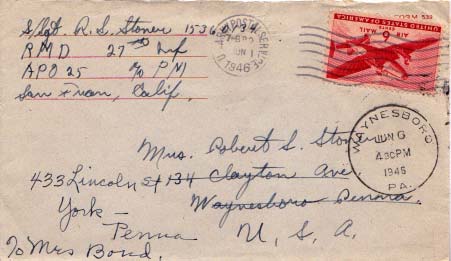 S/Sgt. R. S. Stoner
RMD 27th Inf
APO 25 c/o PM
San Fran, Calif.
ARMY POSTAL SERVICE
JUN 1
1946
UNITED STATES OF AMERICA
AIR MAIL
6
CENTS
WAYNESBORO
JUN 6
4:30 PM
1946
PA.
Mrs. Robert S. Stoner
433 Lincoln St 134 Clayton Ave.
York - Waynesboro Penna.
Penna U. S. A.
To Mrs Bond.